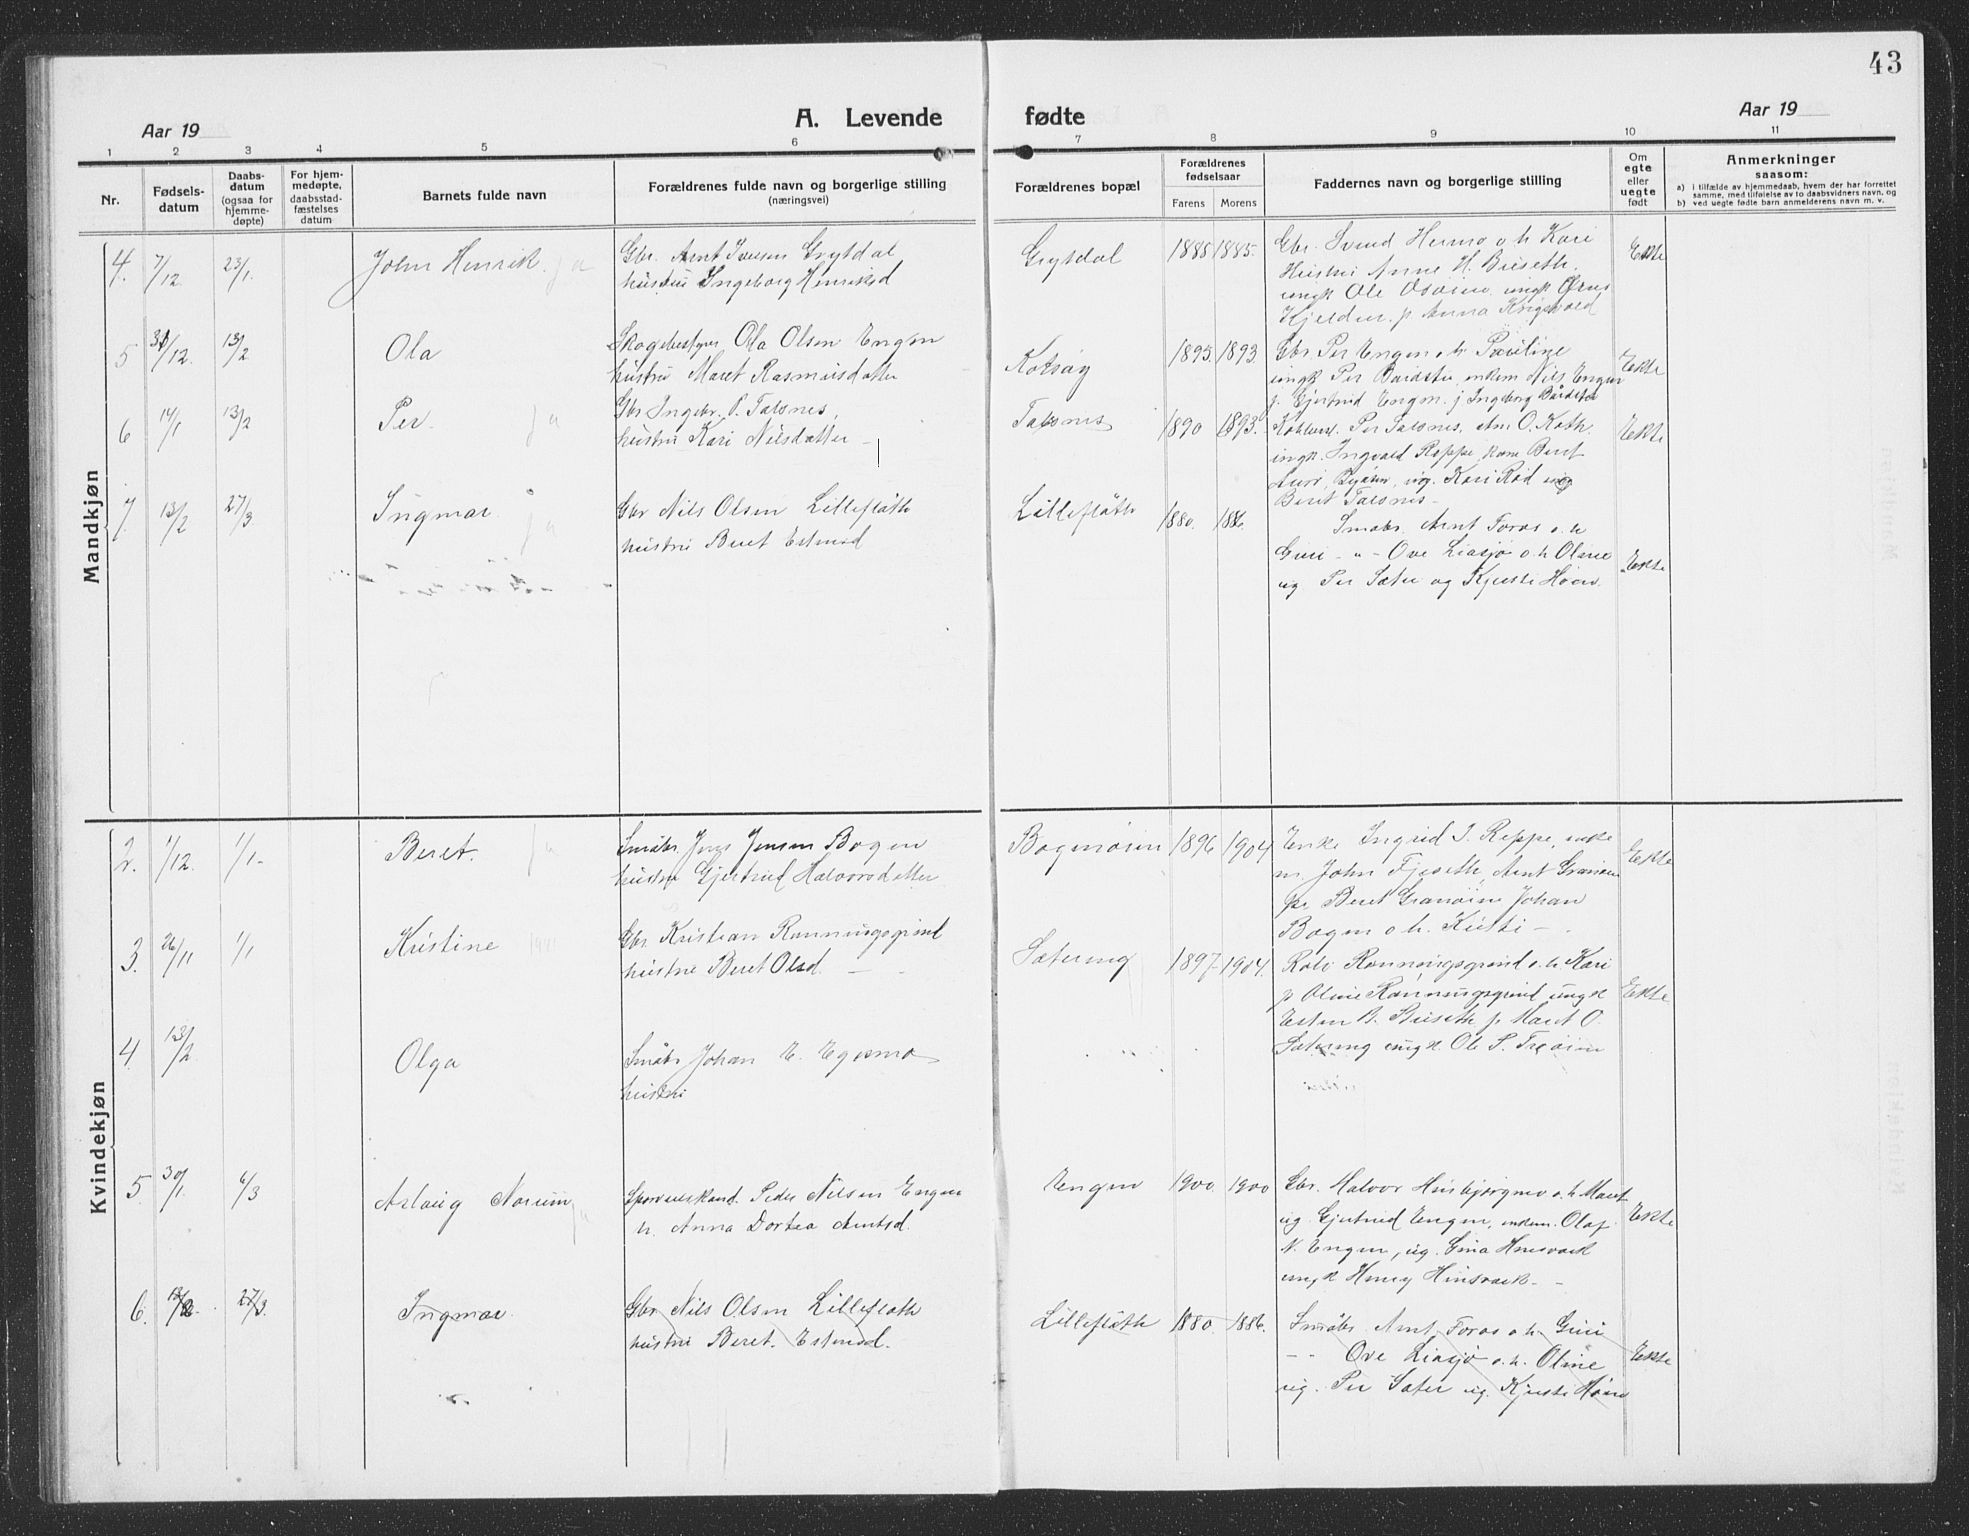 43
Aar 19
A. Levende fødte
Aar 19
1 2 3 4 5 6 7 8 9 10 11
Nr.
Fødsels-
datum
Daabs-
datum
(ogsaa for
hjemme-
døpte)
For hjem-
medøpte,
daabsstad-
fæstelses
datum
Barnets fulde navn
Forældrenes fulde navn og borgerlige stilling
(næringsvei)
Forældrenes bopæl
Forældrenes
fødselsaar
Farens Morens
Faddernes navn og borgerlige stilling
Om
egte
eller
uegte
født
Anmerkninger
saasom:
a) i tilfælde av hjemmedaab, hvem der har forrettet
samme, med tilføielse av to daabsvidners navn, og
b) ved uegte fødte barn anmelderens navn m. v.
Mandkjøn
4. 7/12. 23/1. John Henrik. ja
Gbr. Arnt Iversen Grytdal
hustru Ingeborg Henriksd
Grytdal 1888 1885.
Gbr. Svend Hermo o. h. Kari
Hustru Anne H. Buseth.
ungk Ole
p Anna
Ekte
5 31/12. 13/2 Ola
Skogbestyrer Ola Olsen Engen
hustru Maret Rasmusdatter
Kotsøy 1895. 1893.
Gbr Per Engen o. h. Pauline
ungk Per Bardstu, enkem Nils Engen
p. Gjertrud Engen. p Ingeborg Bårdstu
Ekte
6 14/1 13/2 Per. ja
Gbr Ingebr. P. Talsnes,
hustru Kari Nilsdatter –
Talsnes 1890 1893.
Per Talsnes, O. Koth.
ungk. Ingvald Reppe, kone Beret
Kari Rød
Beret Talsnes –
Ekte
7. 13/2 27/3 Ingmar. ja
Gbr Nils Olsen Lillefløth
hustru Beret Estensd
Lillefløth 1880. 1886.
Småbr. Arnt Foros o. h
Guri – " – Ove Liasjø o. h Oline
ug Per Sæter og Kjersti Høen.
Ekte
Kvindekjøn
2. 1/12. 1/1- Beret. ja
Småbr. Jens Jensen Bogen
hustru Gjertrud Halvorsdatter
Bogenøien 1896 1904
Enke Ingrid J. Reppe, enke
m. John Fjeseth, Arnt Granøien
p. Beret Granøien Johan
Bogen o h. Kirsti – .
Ekte
3. 26/11 1/1 Kristine
Gbr Kristian Rønningsgrind
hustru Beret Olsd. –
Sætereng 1897- 1904.
Rønningsgrind o. h. Kari
p Oline Rønningsgrind ungk
Esten B. Buseth p. Maret O.
Sætereng ungk. Ole P. Trøøien
Ekte
4. 13/2. Olga
Småbr Johan E. Eggsmo
hustru
5. 30/1. 6/3 Aslaug Norum ja
Peder Nilsen Engen
h. Anna Dortea Arntsd.
Engen 1900. 1900
Gbr. Halvor Husbjørgmo o. h Maret
ug. Gjertrud Engen, enkem. Olaf
N. Engen, ug. Gina Hinsværk
ungk Henry Hinsværk – -
Ekte
6. 13/2. 27/3. Ingmar.
Gbr Nils Olsen Lillefløth
hustru Beret. Estensd.
Lillefløth 1880. 1886.
Småbr. Arnt. Foros o. h. Guri
– - Ove Liasjø o. h. Oline
ug. Per Sæter ug. Kjersti Høen
Ekte